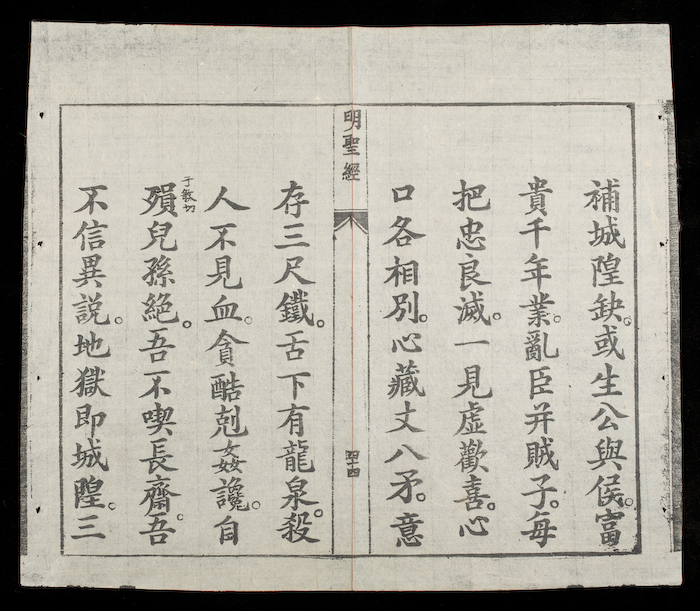 補城隍缺。或生公與侯。富
貴千年業。亂臣并賊子。每
把忠良滅。一見虛歡喜。心
口各相別。心藏丈八矛。意
明聖經
四十四
存三尺鐵。舌下有龍泉。殺
人不見血。貪酷剋姦讒。自
于敏切
殞兒孫絕。吾不喫長齋。吾
不信異說。地獄即城隍。三